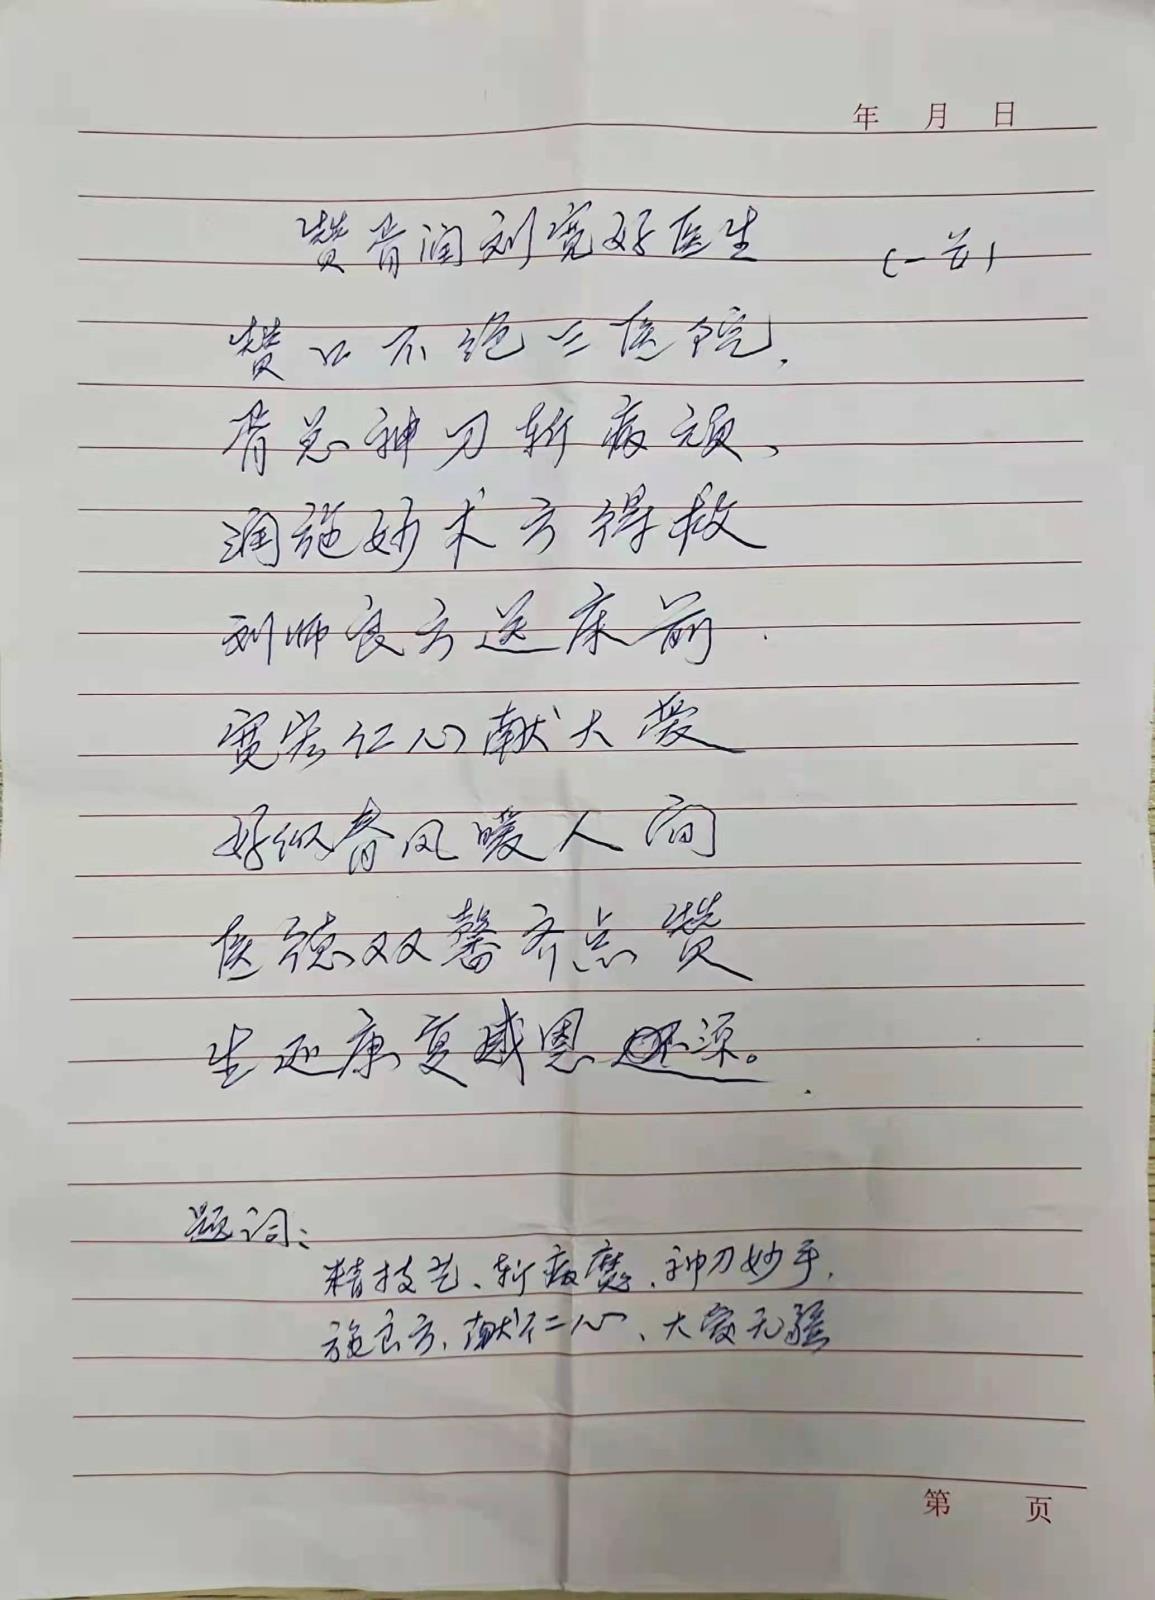 年 月 日
赞胥润刘宽好医生 (一首)
赞口不绝三医院,
胥总神刀斩病顽、
润施妙术方得救
刘师良方送床前.
宽宏仁心献大爱
好似春风暖人间
医德双馨齐点赞
生还康复感恩源。
题词:
精技艺、斩病魔、神刀妙手,
施良方、献仁心、大爱无疆
第 页